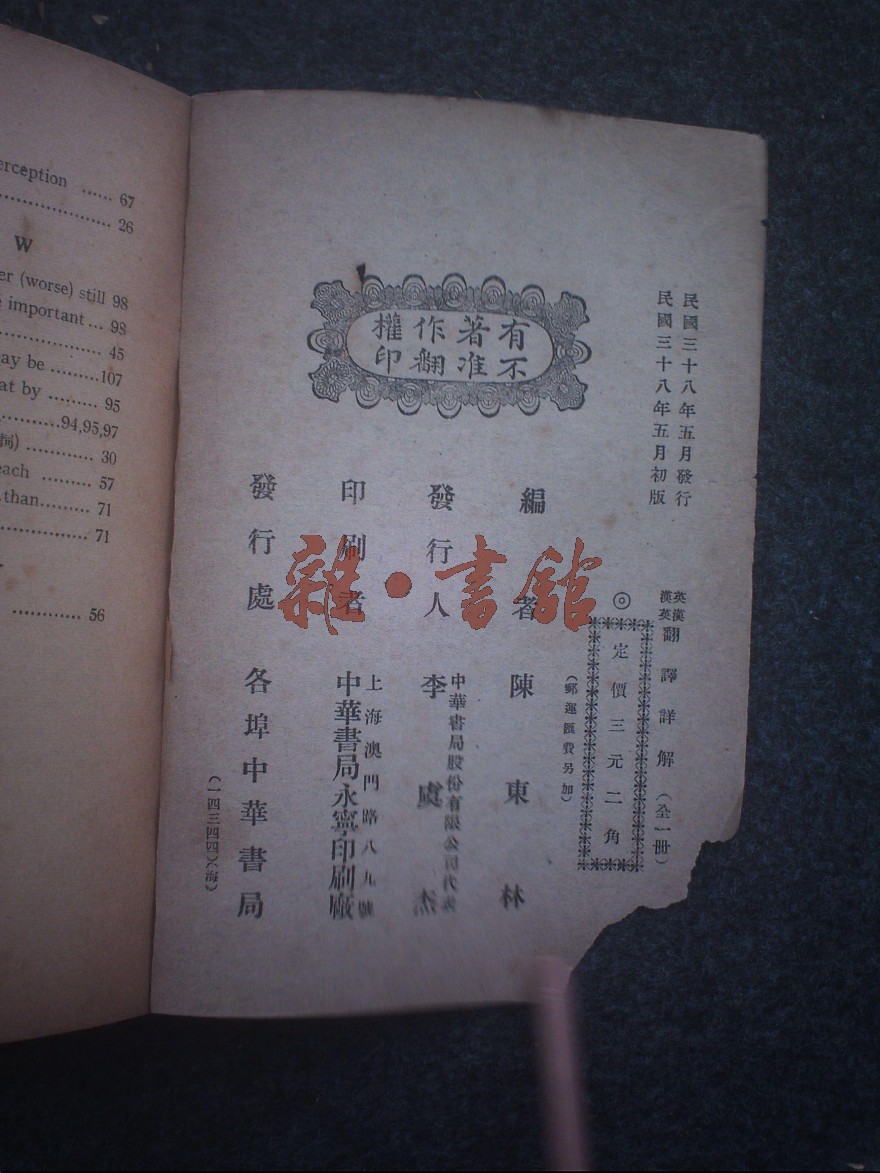 erception ...... 67
..................... 26
W
er (worse) still 98
e important ... 98
.................... 45
ay be .........107
at by ......... 95
...............94,95,97
詞) ............ 30
each ......... 57
.than......... 71
.................... 71
............ 56
民國三十八年五月發行
民國三十八年五月初版
有著作權
不准翻印
英漢
漢英
翻譯詳解(全一冊)
◎
定價三元二角
(郵運匯費另加)
編者 陳東林
發行人 李虞杰
中華書局股份有限公司代表
印刷者
上海澳門路八九號
中華書局永寧印刷廠
發行處 各埠中華書局
(一四三四四)(海)
雜·書館